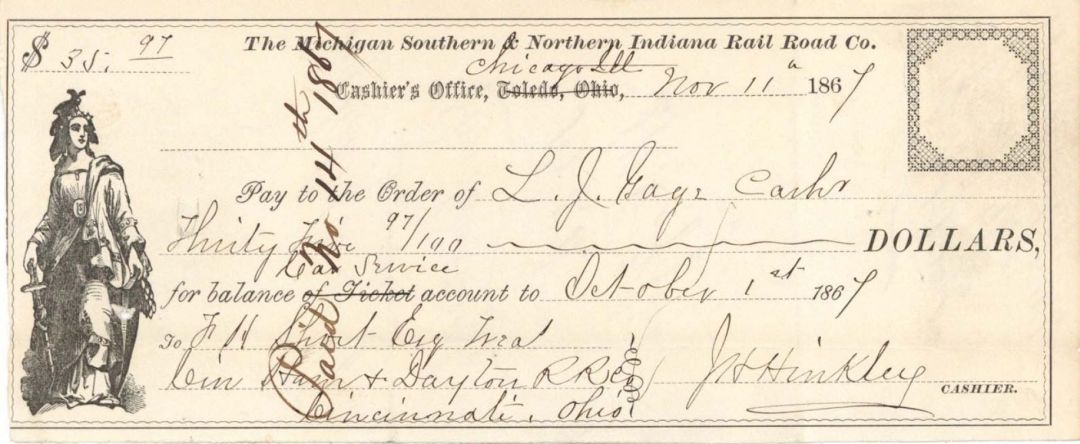 $ 35. 97
The Michigan Southern & Northern Indiana Rail Road Co.
Chicago Ill
Cashier's Office, Toledo, Ohio, Nov 11 a 1867
Pay to the Order of L. J. Gage Cashr
Thirty Five 97/100 DOLLARS,
Car Service
for balance of Ticket account to October 1st 1867
To F H Short Esq Trea
Cin Ham & Dayton R R Co
Cincinnati, Ohio.
J H Hinkley
CASHIER.
Paid Nov 14th 1867